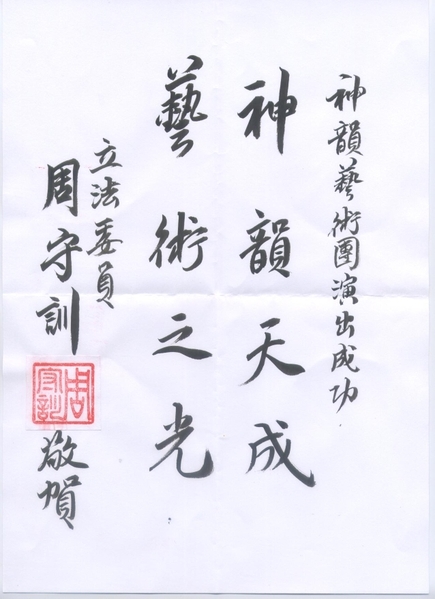 神韻藝術團演出成功
神韻天成
藝術之光
立法委員
周守訓
周守訓
敬賀